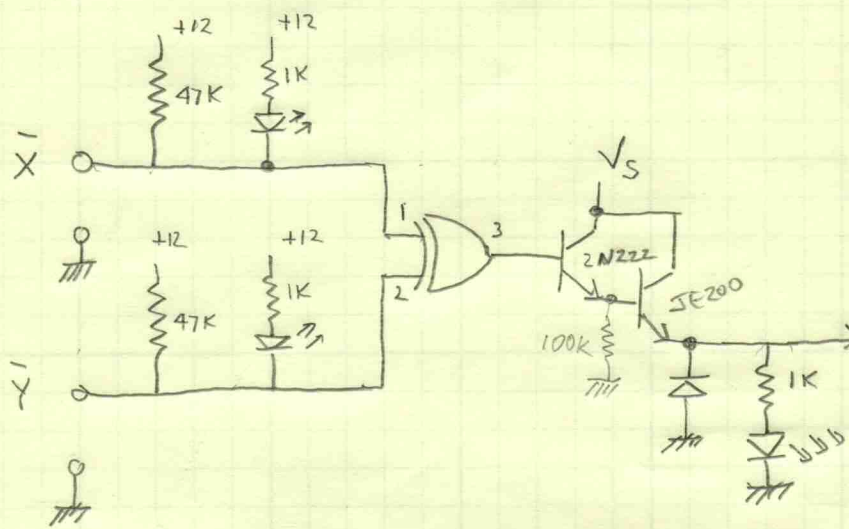 +12
+12
47K
1K
X̄
+12
+12
47K
1K
Ȳ
1
2
3
Vs
2N222
JE200
100K
1K